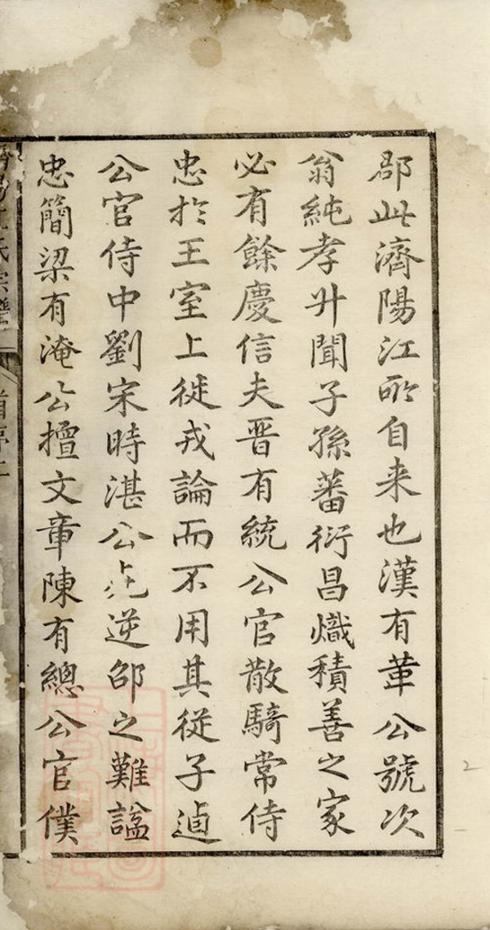 郡此濟陽江所自来也漢有革公號次
翁純孝升聞子孫蕃衍昌熾積善之家
必有餘慶信夫晋有統公官散騎常侍
忠扵王室上徙戎論而不用其従子逌
公官侍中劉宋時湛公死逆邵之難諡
忠簡梁有淹公擅文章陳有總公官僕
氏宗譜 首序二